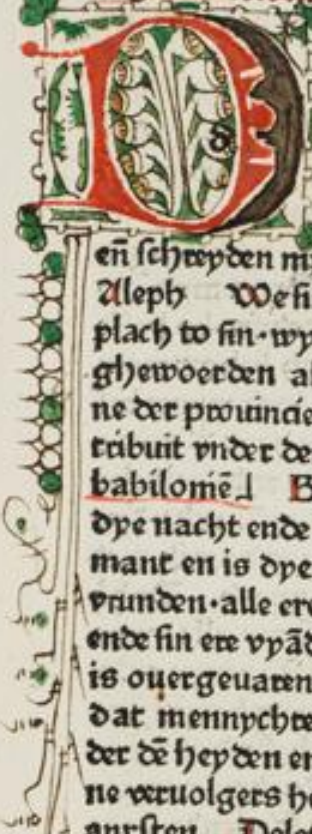 D
d
en̄ schreyden m
Aleph We si
plach to sin·wy
ghewoerden al
ne der prouincie
tribuit vnder de
babiloniē˩ B
dye nacht ende
mant en is dye
vrunden·alle ere
ende sin ere vyād
is ouergeuaren
dat mennychte
der dē heyden en
ne veruolgers he
anrsten Deleg